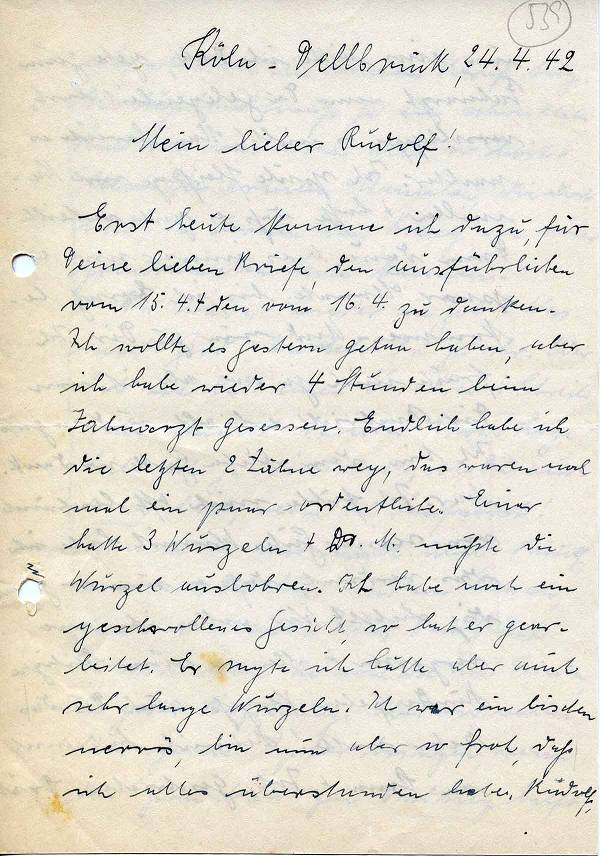 539
Köln - Dellbrück, 24.4.42
Mein lieber Rudolf!
Erst heute komme ich dazu, für
Deine lieben Briefe, den ausführlichen
vom 15.4. + den vom 16.4. zu danken.
Ich wollte es gestern getan haben, aber
ich habe wieder 4 Stunden beim
Zahnarzt gesessen. Endlich habe ich
die letzten 2 Zähne weg, das waren noch
mal ein paar ordentliche. Einer
hatte 3 Wurzeln + Dr. M. mußte die
Wurzel ausbohren. Ich habe noch ein
geschwollenes Gesicht, so hat er gear-
beitet. Er sagte ich hätte aber auch
sehr lange Wurzeln. Ich war ein bischen
nervös, bin nun aber so froh, daß
ich alles überstanden habe. Rudolf,